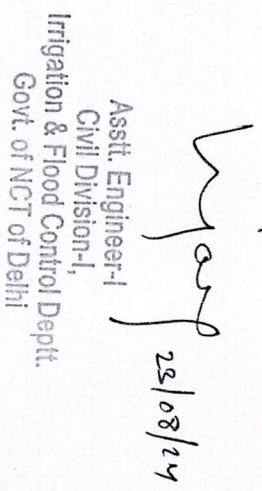 23/08/24
Asstt. Engineer-I
Civil Division-I,
Irrigation & Flood Control Deptt.
Govt. of NCT of Delhi